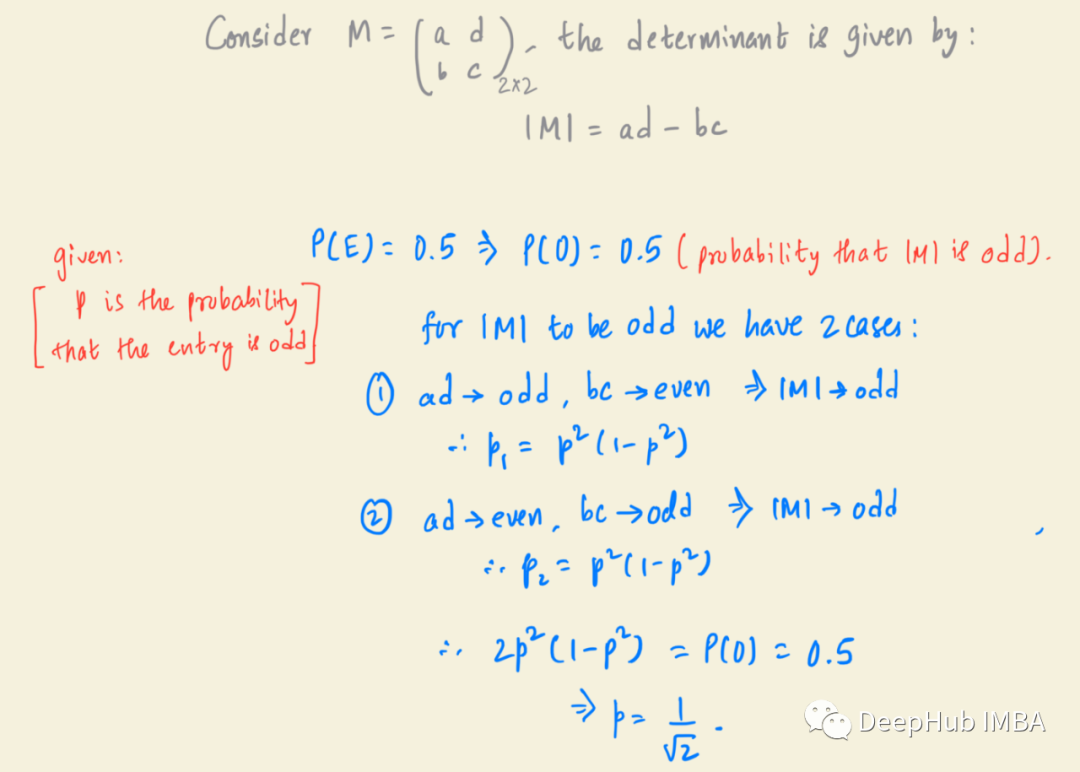 Consider M = (a d
b c)2×2, the determinant is given by:
|M| = ad - bc
P(E) = 0.5 ⇒ P(O) = 0.5 (probability that |M| is odd).
given:
[p is the probability
that the entry is odd]
for |M| to be odd we have 2 cases:
① ad → odd, bc → even ⇒ |M| → odd
∴ p₁ = p²(1-p²)
② ad → even, bc → odd ⇒ |M| → odd
∴ p₂ = p²(1-p²)
∴ 2p²(1-p²) = P(O) = 0.5
⇒ p = 1/√2.
DeepHub IMBA